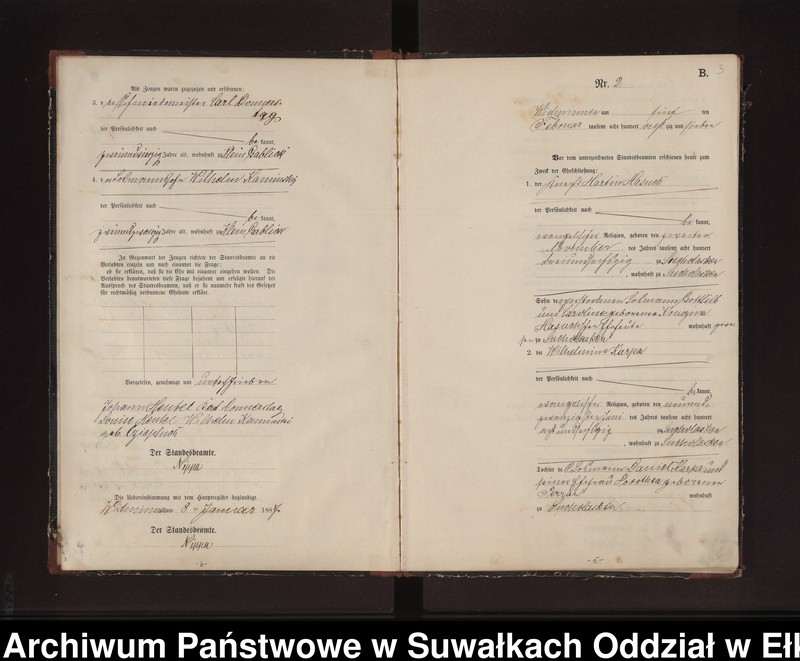 Als Zeugen waren zugezogen und erschienen:
3. der Schmiedemeister Carl Donners-
tag
der Persönlichkeit nach
be kannt,
Jahre alt, wohnhaft in Klein Gablick
4. der Wilhelm Kaminski
der Persönlichkeit nach
be kannt,
Jahre alt, wohnhaft zu Klein Gablick
In Gegenwart der Zeugen richtete der Standesbeamte an die
Verlobten einzeln und nach einander die Frage:
ob sie erklären, daß sie die Ehe mit einander eingehen wollen. Die
Verlobten beantworteten diese Frage bejahend und erfolgte hierauf der
Ausspruch des Standesbeamten, daß er sie nunmehr kraft des Gesetzes
für rechtmäßig verbundene Eheleute erkläre.
Vorgelesen, genehmigt und unterschrieben
Johann Hensel Karl Donnerstag
Louise Hensel Wilhelm Kaminski
geb.
Der Standesbeamte.
Nippa
Die Uebereinstimmung mit dem Hauptregister beglaubigt
Widminnen am 8. Januar 1887
Der Standesbeamte.
Nippa
-4-
B. 3
Nr. 2
Widminnen am fünf ten
Februar tausend acht hundert acht zig und sieben
Vor dem unterzeichneten Standesbeamten erschienen heute zum
Zweck der Eheschließung:
1. der Martin
der Persönlichkeit nach
be kannt,
evangelischer Religion, geboren den zweiten
November des Jahres tausend acht hundert
dreiundsechszig zu Sucholasken
, wohnhaft zu Sucholasken
Sohn des verstorbenen Losmann Gottlieb
und Caroline geborene
Eheleute wohnhaft gewe-
sen zu Sucholasken
2. die Wilhelmine Karpa
der Persönlichkeit nach
be kannt,
evangelischer Religion, geboren den neunund
zwanzigsten Juni des Jahres tausend acht hundert
achtundsechszig zu Sucholasken
, wohnhaft zu Sucholasken
Tochter des Losmann Daniel Karpa und
seiner Ehefrau Dorothea geborene
wohnhaft
zu Sucholasken
-5-
Archiwum Państwowe w Suwałkach Oddział w Ełk